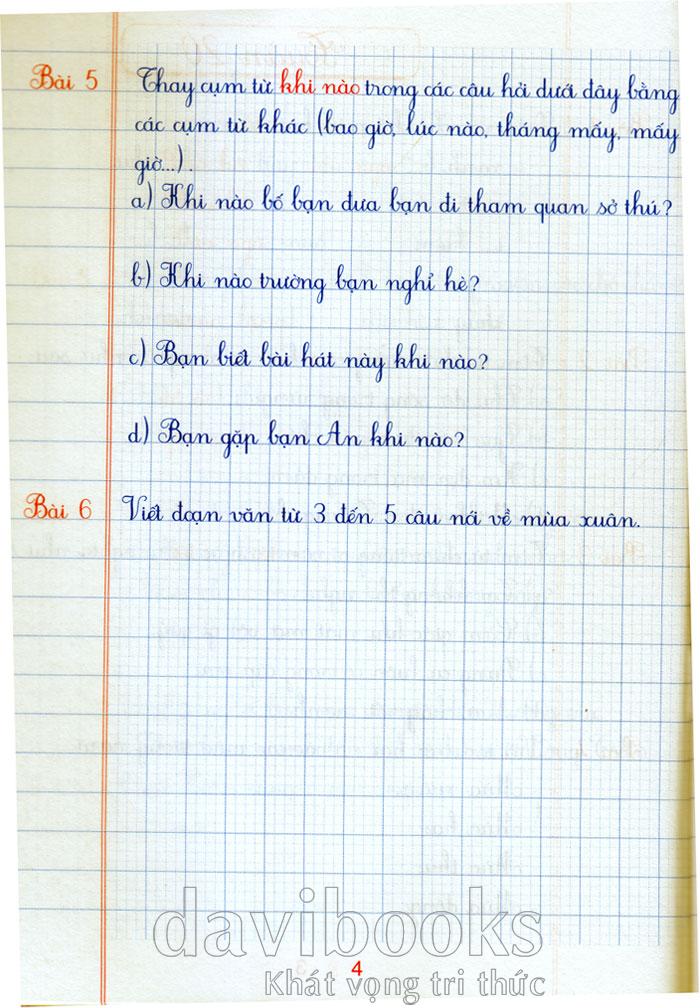 Bài 5 Thay cụm từ khi nào trong các câu hỏi dưới đây bằng
các cụm từ khác (bao giờ, lúc nào, tháng mấy, mấy
giờ...).
a) Khi nào bố bạn đưa bạn đi tham quan sở thú?
b) Khi nào trường bạn nghỉ hè?
c) Bạn biết bài hát này khi nào?
d) Bạn gặp bạn An khi nào?
Bài 6 Viết đoạn văn từ 3 đến 5 câu nói về mùa xuân.
davibooks
4
Khát vọng tri thức